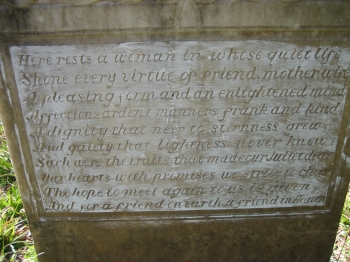 Here rests a woman in whose quiet life
Shone every virtue of friend, mother, wife
A pleasing form and an enlightened mind
Affections ardent manners frank and kind
A dignity that ne'er to sternness grew
And gaiety that lightness never knew
Such were the traits that made our Juliet dear
Our hearts with promises we strive to cheer
The hope to meet again to us is given
And for a friend on earth, a friend in heaven